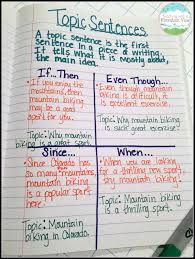 Topic Sentences
A topic sentence is the first
sentence in a piece of writing.
It tells what it is mostly about.
If...Then
• If you enjoy
the mountains, then
mountain biking
may be a great
sport for you.
Topic: Why mountain
biking is a great sport.
Even Though...
• Even though
mountain biking is
difficult, it is
excellent exercise.
Topic: Why mountain biking
is such great exercise!
Since...
• Since Colorado has
so many mountains,
mountain biking is
a popular sport
here.
Topic: Mountain
biking in Colorado.
When...
• When you are looking
for a thrilling new sport,
try mountain biking!
Topic: Mountain biking
is a thrilling sport.